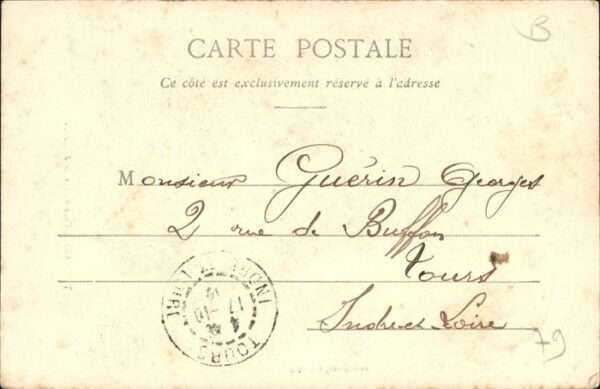 B
CARTE POSTALE
Ce côté est exclusivement réservé à l'adresse
Monsieur Guérin Georges
2 rue de Buffon
Tours
Indre et Loire
TOURS
79